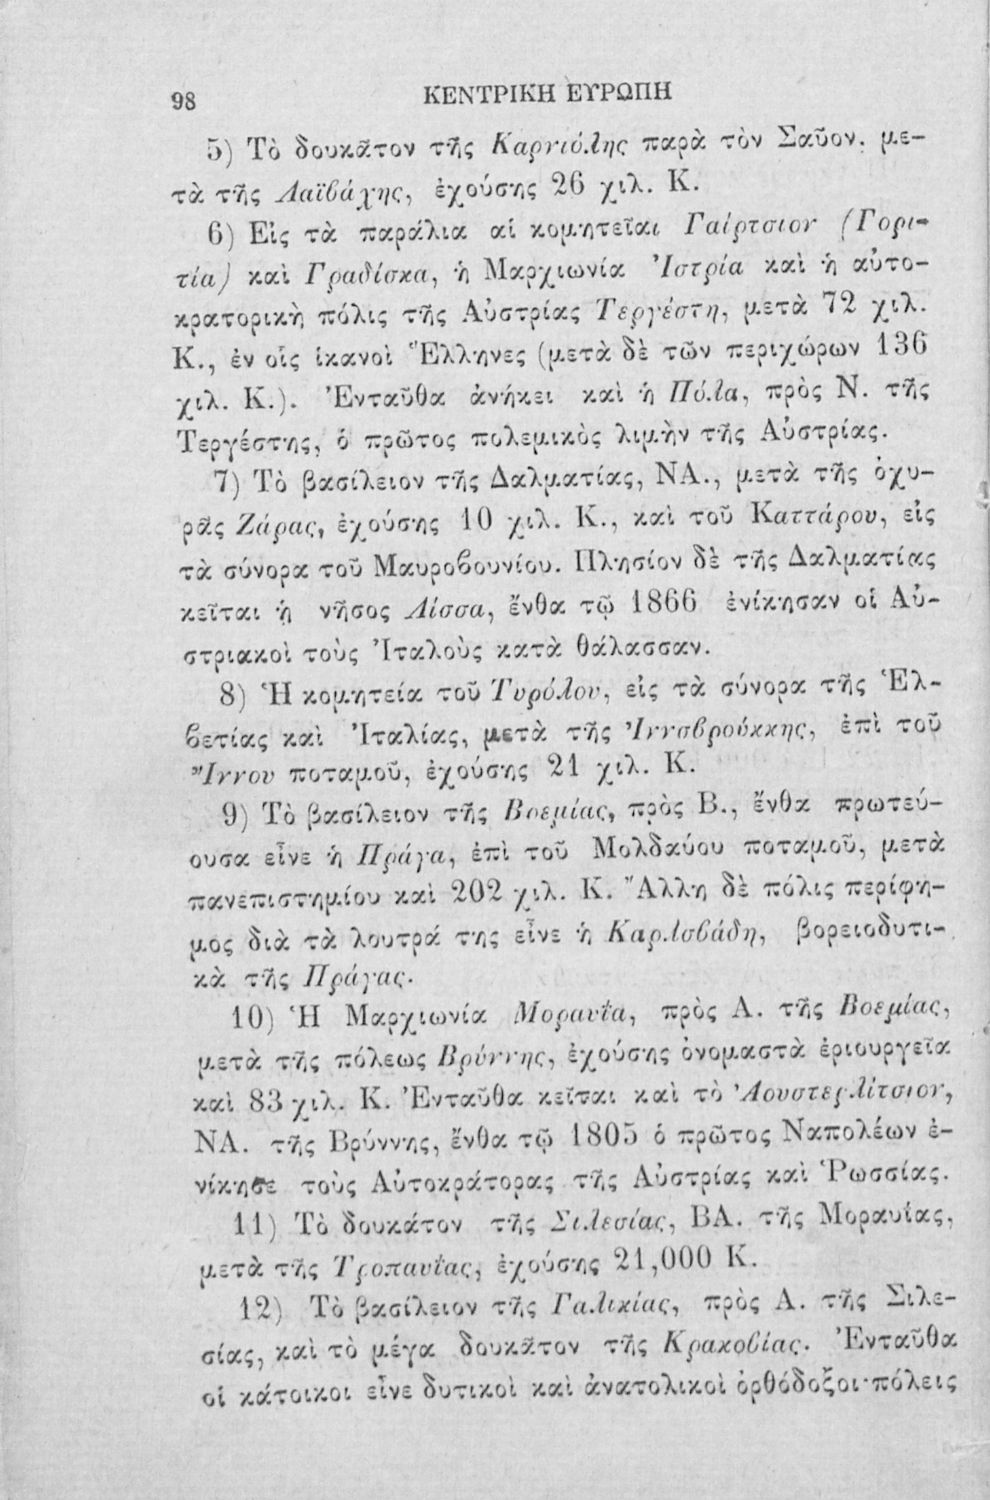 98
ΚΕΝΤΡΙΚΗ ΕΥΡΩΠΗ
5) Τὸ δουκᾶτον τῆς Καρνιόλης παρὰ τὸν Σαῦον, με-
τὰ τῆς Λαϊβάχης, ἐχούσης 26 χιλ. Κ.
6) Εἰς τὰ παράλια αἱ κομητεῖαι Γαίρτσιον (Γορι-
τία) καὶ Γραδίσκα, ἡ Μαρχιωνία Ἰστρία καὶ ἡ αὐτο-
κρατορικὴ πόλις τῆς Αὐστρίας Τεργέστη, μετὰ 72 χιλ.
Κ., ἐν οἷς ἱκανοὶ Ἕλληνες (μετὰ δὲ τῶν περιχώρων 136
χιλ. Κ.). Ἐνταῦθα ἀνήκει καὶ ἡ Πόλα, πρὸς Ν. τῆς
Τεργέστης, ὁ πρῶτος πολεμικὸς λιμὴν τῆς Αὐστρίας.
7) Τὸ βασίλειον τῆς Δαλματίας, ΝΑ., μετὰ τῆς ὀχυ-
ρᾶς Ζάρας, ἐχούσης 10 χιλ. Κ., καὶ τοῦ Καττάρου, εἰς
τὰ σύνορα τοῦ Μαυροβουνίου. Πλησίον δὲ τῆς Δαλματίας
κεῖται ἡ νῆσος Λίσσα, ἔνθα τῷ 1866 ἐνίκησαν οἱ Αὐ-
στριακοὶ τοὺς Ἰταλοὺς κατὰ θάλασσαν.
8) Ἡ κομητεία τοῦ Τυρόλου, εἰς τὰ σύνορα τῆς Ἑλ-
βετίας καὶ Ἰταλίας, μετὰ τῆς Ἰννσβρούκκης, ἐπὶ τοῦ
Ἴννου ποταμοῦ, ἐχούσης 21 χιλ. Κ.
9) Τὸ βασίλειον τῆς Βοεμίας, πρὸς Β., ἔνθα πρωτεύ-
ουσα εἶνε ἡ Πράγα, ἐπὶ τοῦ Μολδαύου ποταμοῦ, μετὰ
πανεπιστημίου καὶ 202 χιλ. Κ. Ἄλλη δὲ πόλις περίφη-
μος διὰ τὰ λουτρά της εἶνε ἡ Καρλσβάδη, βορειοδυτι-
κὰ τῆς Πράγας.
10) Ἡ Μαρχιωνία Μοραυΐα, πρὸς Α. τῆς Βοεμίας,
μετὰ τῆς πόλεως Βρύννης, ἐχούσης ὀνομαστὰ ἐριουργεῖα
καὶ 83 χιλ. Κ. Ἐνταῦθα κεῖται καὶ τὸ Ἀουστερλίτσιον,
ΝΑ. τῆς Βρύννης, ἔνθα τῷ 1805 ὁ πρῶτος Ναπολέων ἐ-
νίκησε τοὺς Αὐτοκράτορας τῆς Αὐστρίας καὶ Ῥωσσίας.
11) Τὸ δουκάτον τῆς Σιλεσίας, ΒΑ. τῆς Μοραυΐας,
μετὰ τῆς Τροπαυΐας, ἐχούσης 21,000 Κ.
12) Τὸ βασίλειον τῆς Γαλικίας, πρὸς Α. τῆς Σιλε-
σίας, καὶ τὸ μέγα δουκᾶτον τῆς Κρακοβίας. Ἐνταῦθα
οἱ κάτοικοι εἶνε δυτικοὶ καὶ ἀνατολικοὶ ὀρθόδοξοι· πόλεις